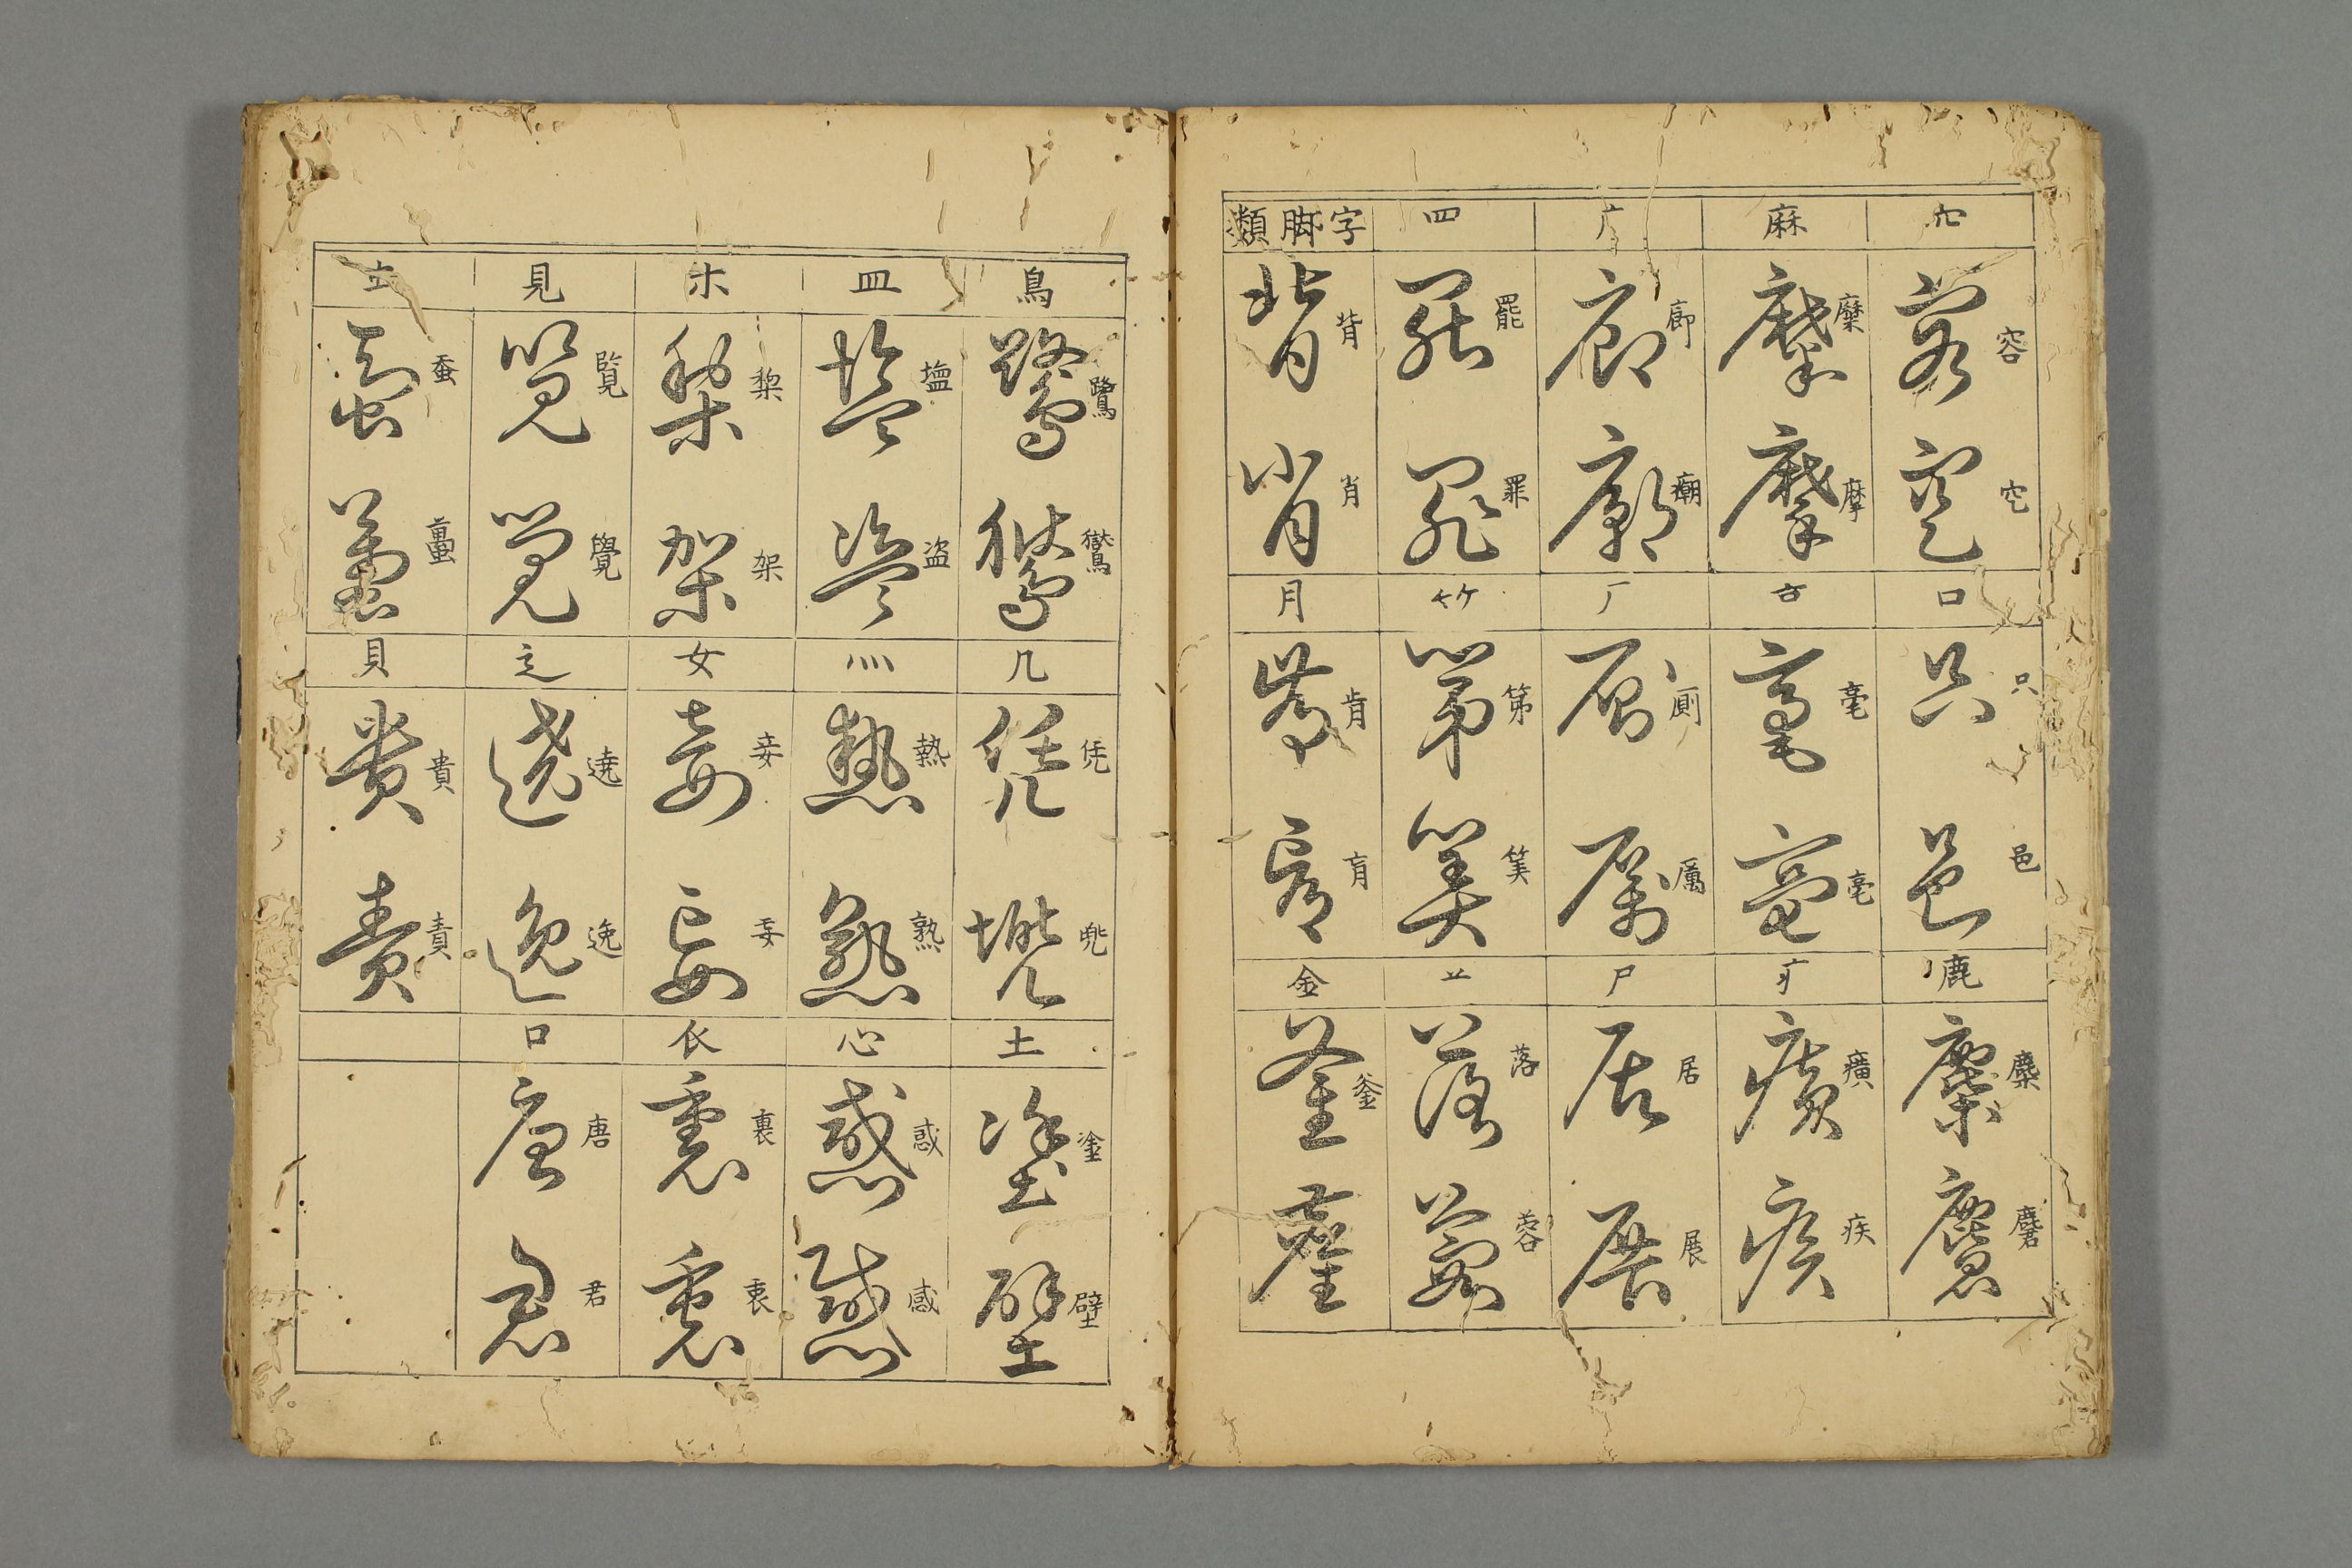 穴
容
空
口
只
邑
鹿
麋
麿
麻
糜
摩
亠
毫
亳
疒
癀
疾
广
廊
廟
厂
厠
厲
尸
居
展
罒
罷
罪
竹
第
笑
艹
落
蓉
字脚類
背
肖
月
肯
肓
金
釜
鳥
鷺
鸞
几
凭
兠
土
塗
壁
皿
塩
盗
灬
熱
熟
心
惑
感
木
梨
架
女
妾
妄
衣
裏
衷
見
覧
覺
辶
遶
逸
口
唐
君
蚕
貝
貴
責